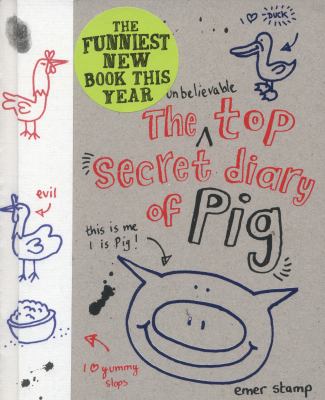 THE
FUNNIEST
NEW
BOOK THIS
YEAR
I ♡ DUCK
unbelievable
The top
secret diary
of Pig
evil
this is me
I is Pig!
I ♡ yummy
slops
emer stamp